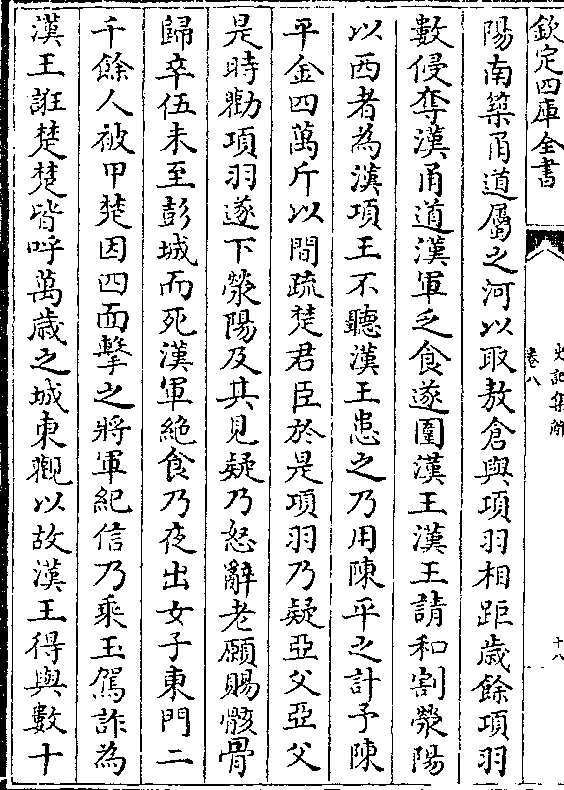 欽定四庫全書
史記集解
卷八
十八
陽南築甬道屬之河以取敖倉與項羽相距歲餘項羽
數侵奪漢甬道漢軍乏食遂圍漢王漢王請和割滎陽
以西者為漢項王不聽漢王患之乃用陳平之計予陳
平金四萬斤以間疏楚君臣於是項羽乃疑亞父亞父
是時勸項羽遂下滎陽及其見疑乃怒辭老願賜骸骨
歸卒伍未至彭城而死漢軍絶食乃夜出女子東門二
千餘人被甲楚因四面擊之將軍紀信乃乘王駕詐為
漢王誑楚楚皆呼萬歲之城東觀以故漢王得與數十